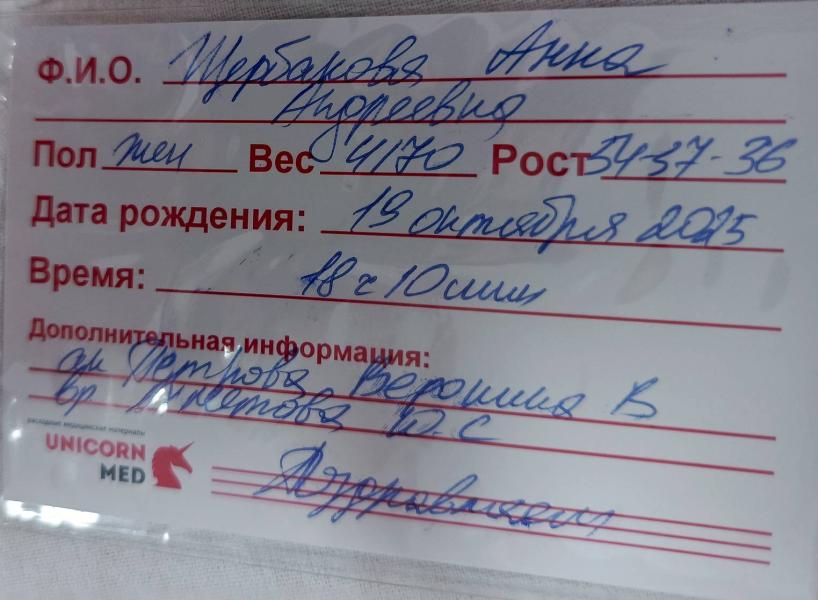 Ф.И.О. Щербакова Анна
Андреевна
Пол жен Вес 4170 Рост 54-37-36
Дата рождения: 19 октября 2025
Время: 18 ч 10 мин
Дополнительная информация:
ак Петрова Вероника В
вр Ю.С
расходные медицинские материалы
UNICORN
MED
Поздравляем